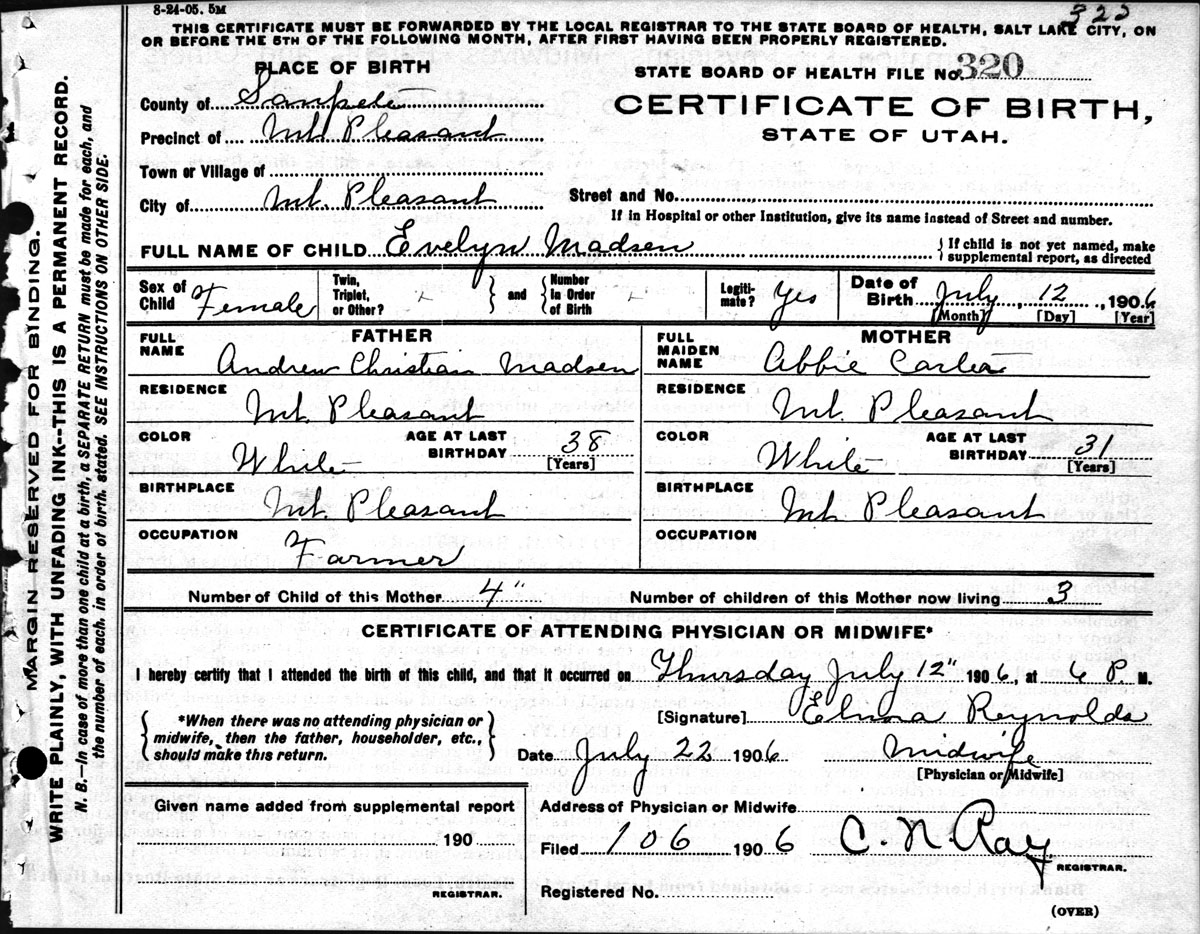 8-24-05. 5M
322
THIS CERTIFICATE MUST BE FORWARDED BY THE LOCAL REGISTRAR TO THE STATE BOARD OF HEALTH, SALT LAKE CITY, ON
OR BEFORE THE 5TH OF THE FOLLOWING MONTH, AFTER FIRST HAVING BEEN PROPERLY REGISTERED.
PLACE OF BIRTH
STATE BOARD OF HEALTH FILE No. 320
County of Sanpete
CERTIFICATE OF BIRTH,
Precinct of Mt. Pleasant
STATE OF UTAH.
Town or Village of
City of Mt. Pleasant Street and No.
If in Hospital or other Institution, give its name instead of Street and number.
FULL NAME OF CHILD Evelyn Madsen {If child is not yet named, make
supplemental report, as directed
Sex of Child Female Twin, Triplet, or Other? and Number In Order of Birth Legiti-mate? Yes Date of Birth July, 12, 1906
[Month] [Day] [Year]
FATHER
FULL NAME Andrew Christian Madsen
RESIDENCE Mt. Pleasant
COLOR White AGE AT LAST BIRTHDAY 38
[Years]
BIRTHPLACE Mt. Pleasant
OCCUPATION Farmer
MOTHER
FULL MAIDEN NAME Abbie Carter
RESIDENCE Mt. Pleasant
COLOR White AGE AT LAST BIRTHDAY 31
[Years]
BIRTHPLACE Mt. Pleasant
OCCUPATION
Number of Child of this Mother 4" Number of children of this Mother now living 3
CERTIFICATE OF ATTENDING PHYSICIAN OR MIDWIFE*
I hereby certify that I attended the birth of this child, and that it occurred on Thursday July 12" 1906, at 6 P. M.
*When there was no attending physician or
midwife, then the father, householder, etc.,
should make this return.
[Signature] Elmina Reynolds
Date July 22 1906 Midwife
[Physician or Midwife]
Given name added from supplemental report
190
REGISTRAR.
Address of Physician or Midwife
Filed 106 1906 C. N. Ray
REGISTRAR.
Registered No.
(OVER)
MARGIN RESERVED FOR BINDING.
WRITE PLAINLY, WITH UNFADING INK--THIS IS A PERMANENT RECORD.
N. B.--In case of more than one child at a birth, a SEPARATE RETURN must be made for each, and
the number of each, in order of birth, stated. SEE INSTRUCTIONS ON OTHER SIDE.